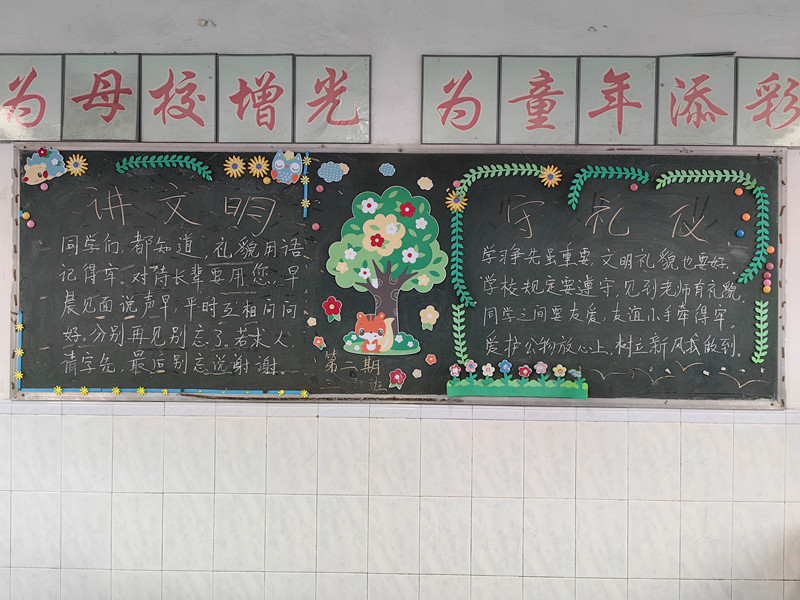 为母校增光
为童年添彩
讲文明
同学们,都知道,礼貌用语
记得牢。对待长辈要用您,早
晨见面说声早,平时互相问问
好。分别再见别忘了。若求人
请字先,最后别忘说谢谢。
第二期
班
守礼仪
学习争先虽重要,文明礼貌也要好,
学校规定要遵守,见到老师有礼貌,
同学之间要友爱,友谊小手牵得牢
爱护公物放心上,树立新风我做到。